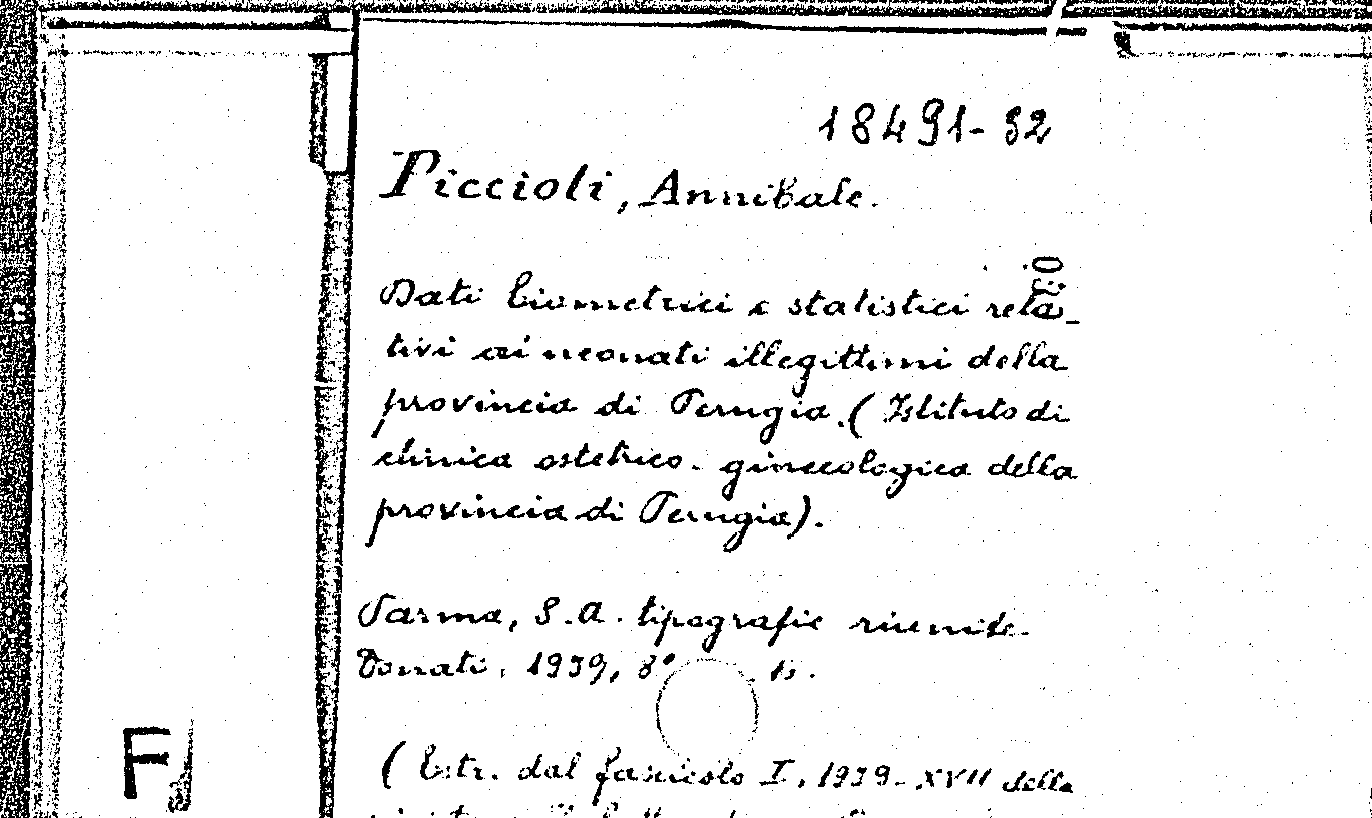 18491-32
Piccioli, Annibale.
Dati biometrici e statistici rela-
tivi ai neonati illegittimi della
provincia di Perugia. (Istituto di
clinica ostetrico-ginecologica della
provincia di Perugia).
Parma, S.A. tipografie riunite
Donati, 1939, 8°
(Estr. dal fascicolo I, 1939-XVII della
F